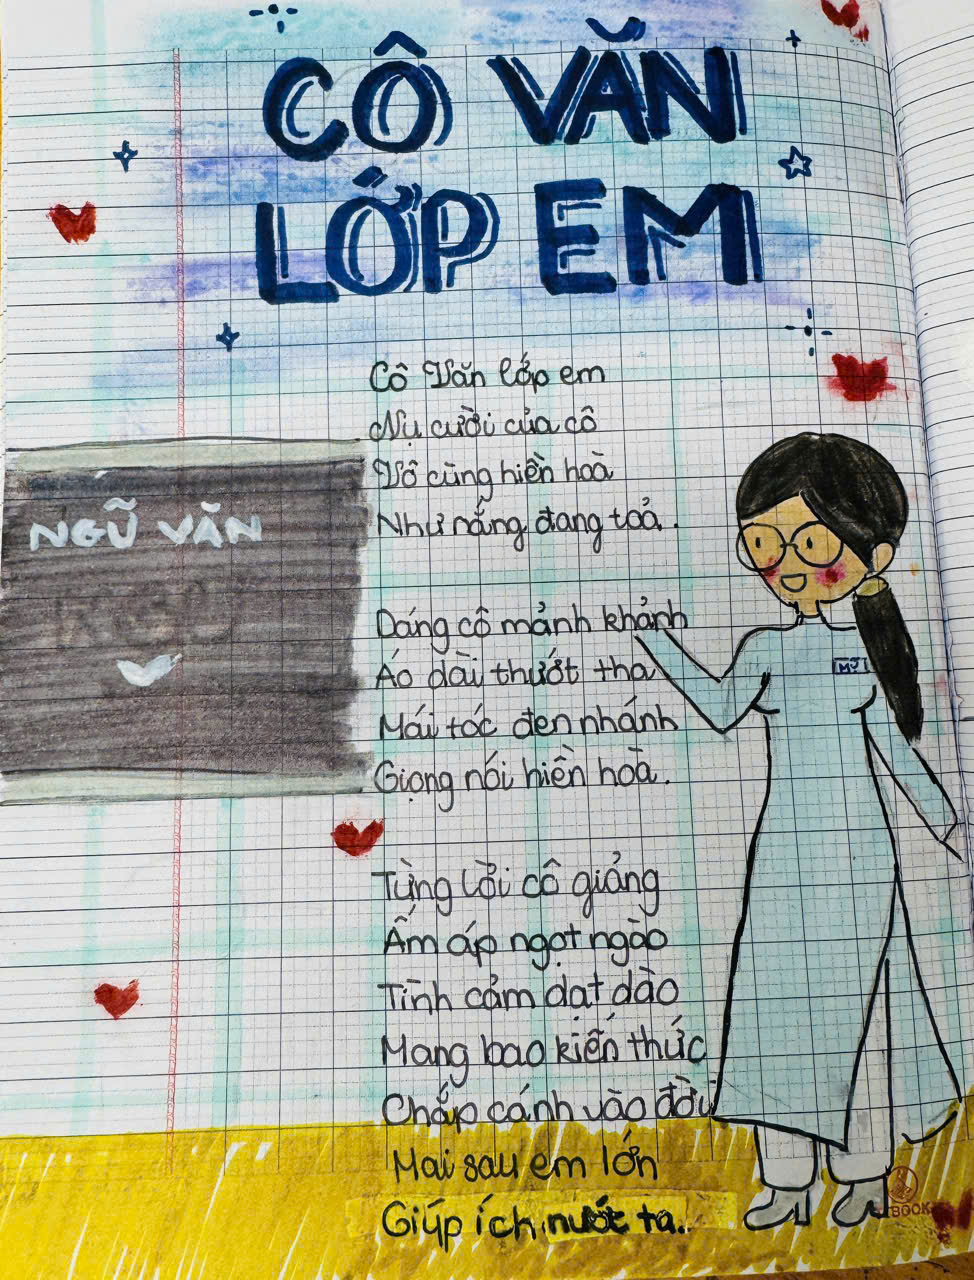 CÔ VĂN
LỚP EM
Cô Văn lớp em
Nụ cười của cô
Vô cùng hiền hoà
Như nắng đang toả.
NGŨ VĂN
Dáng cô mảnh khảnh
Áo dài thướt tha
Mái tóc đen nhánh
Giọng nói hiền hoà.
Từng lời cô giảng
Ấm áp ngọt ngào
Tình cảm dạt dào
Mang bao kiến thức
Chắp cánh vào đời
Mai sau em lớn
Giúp ích nước ta..
BOOK